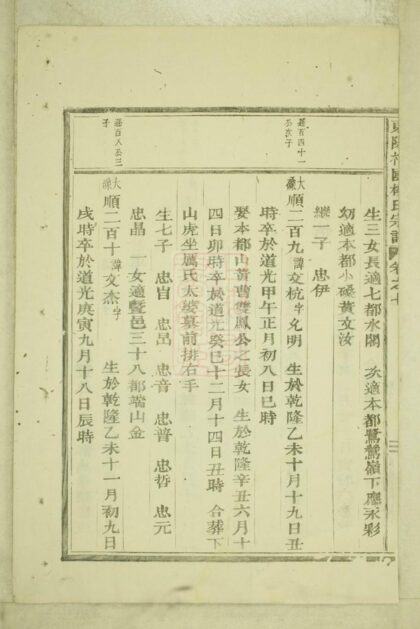 生三女長適七都水閣　次適本都鷺鷥嶺下應永彩
幼適本都小磉黃友汝
繼一子　忠伊
嘉百四十一公次子
大像順二百九諱文杭字允明　生於乾隆乙未十月十九日丑
時卒於道光甲午正月初八日巳時
娶本都山黃曹雙鳳公之長女　生於乾隆辛丑六月十
四日卯時卒於道光癸巳十二月十四日丑時　合葬下
山虎坐厲氏太婆墓前排右手
生七子　忠旨　忠昌　忠音　忠普　忠哲　忠元
忠晶　一女適暨邑三十八都端山金
嘉百八公三子
大像順二百十諱文杰字　生於乾隆乙未十一月初九日
戌時卒於道光庚寅九月十八日辰時